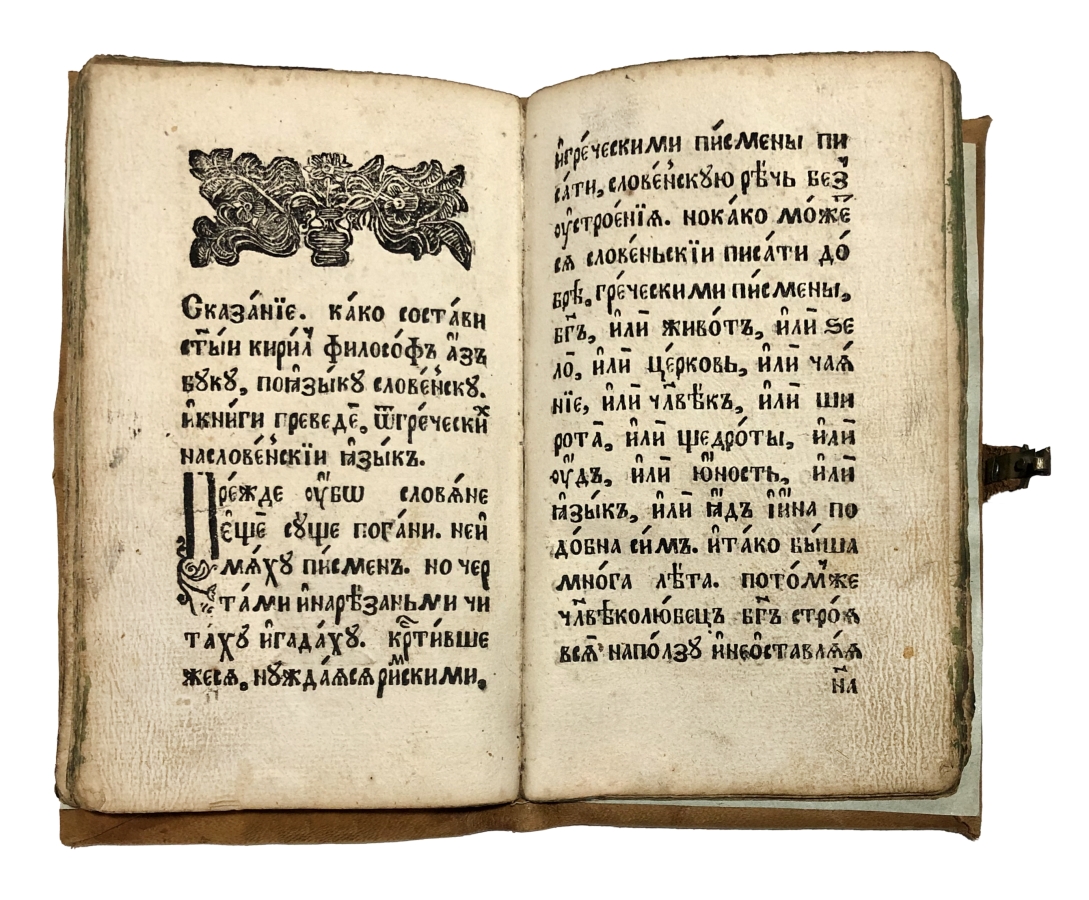 Сказа́нїе. ка́ко соста́ви
ст҃ы́и кирил̾ філосо́фъ а҆́зъ
бꙋкꙋ, поꙗ҆зы́кꙋ слове́нскꙋ.
и҆кни́ги преведе̄, ѿгре́ческиⷯ
насло́ве́нскїи ꙗ҆зы́къ.
Пре́жде ᲂу҆́бѡ словѧ́не
є҆щѐ сꙋ́ще пога́ни. неи҆
мѧ́хꙋ пи́сменъ. но чер
та́ми и҆нарѣ́заньми чи
та́хꙋ и҆гада́хꙋ. кр҃ти́вше
жесѧ. нꙋжда́ѧсѧ риⷨскими,
и҆гре́ческими пи́смены пи
са́ти, слове́нскꙋю рѣ́чь без̾
ᲂу҆строе́нїѧ. нока́ко мо́же̄
сѧ слове́ньскїи писа́ти до́
брѣ, гре́ческими пи́смены,
бг҃ъ, и҆лӣ живо́тъ, и҆лӣ ѕе
ло̄, и҆лӣ це́рковь, и҆лӣ чаѧ́
нїе, и҆лӣ чл҃вѣ́къ, и҆лӣ ши
рота̄, и҆лӣ щедро́ты, и҆лӣ
ᲂу҆́дъ, и҆лӣ ю҆́ность, и҆лӣ
ꙗ҆зы́къ, и҆лӣ ꙗ҆́дъ і҆и҆́на по
до́бна си́мъ. и҆та́ко бы́ша
мно́га лѣ́та. пото́м̾же
чл҃вѣколю́бецъ бг҃ъ стро́ѧ
всѧ̑ напо́лзꙋ и҆неѡ҆ставлѧ́ѧ
на̄